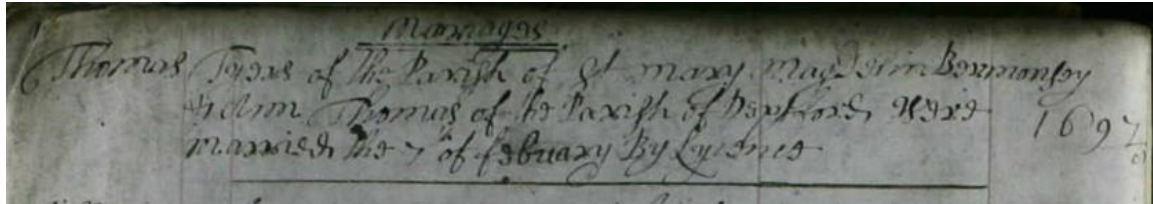 Marriages
Thomas Tyers of the Parish of St mary Magdelin Bermonsey
& Ann Thomas of the Parish of Deptford were 1697/8
married the 7 of february By Lycence